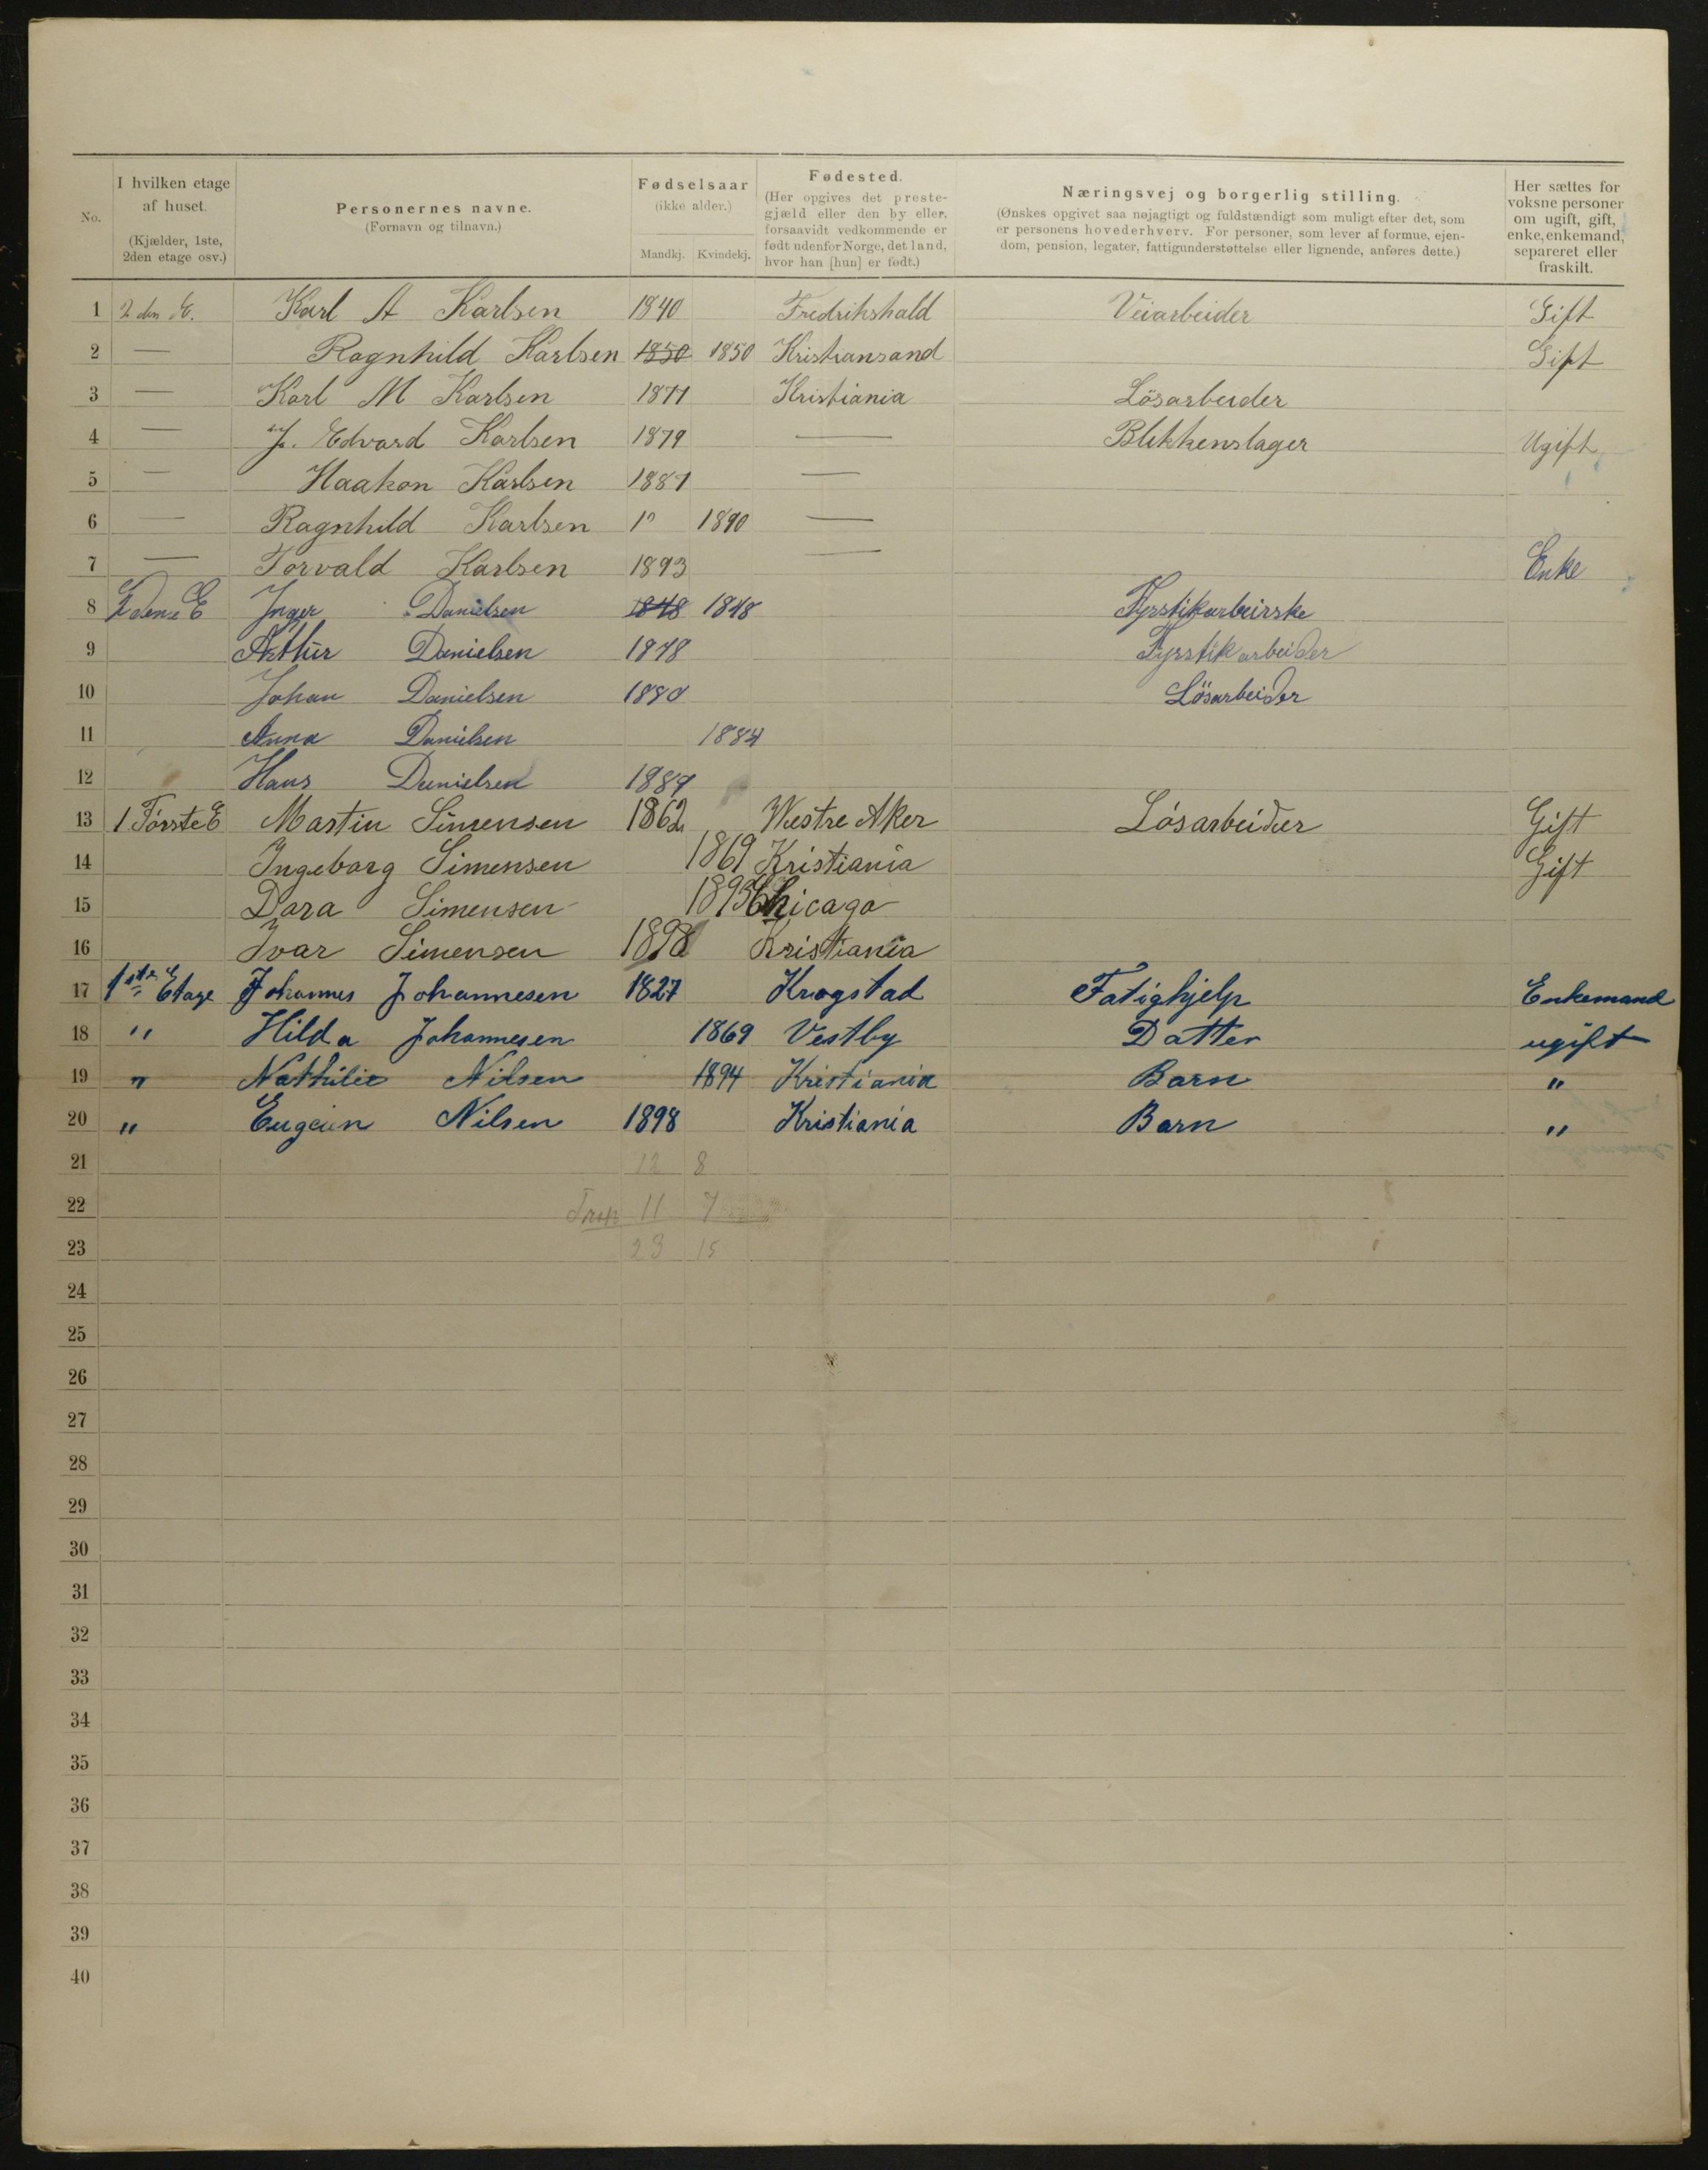 No.
I hvilken etage af huset. (Kjælder, 1ste, 2den etage osv.)
Personernes navne. (Fornavn og tilnavn.)
Fødselsaar (ikke alder.) Mandkj. Kvindekj.
Fødested. (Her opgives det prestegjæld eller den by eller, forsaavidt vedkommende er født udenfor Norge, det land, hvor han [hun] er født.)
Næringsvej og borgerlig stilling. (Ønskes opgivet saa nøjagtigt og fuldstændigt som muligt efter det, som er personens hovederhverv. For personer, som lever af formue, ejendom, pension, legater, fattigunderstøttelse eller lignende, anføres dette.)
Her sættes for voksne personer om ugift, gift, enke, enkemand, separeret eller fraskilt.
1 2 den E. Karl A Karlsen 1840 Fredrikshald Veiarbeider Gift
2 — Ragnhild Karlsen 1850 1850 Kristiansand Gift
3 — Karl M Karlsen 1877 Kristiania Lösarbeider
4 — J. Edvard Karlsen 1879 — Blikkenslager Ugift
5 — Haakon Karlsen 1887 —
6 — Ragnhild Karlsen 1890 —
7 — Torvald Karlsen 1893 — Enke
8 2 dene E Inger Danielsen 1848 1848 Fyrstikarbeirske
9 Arthur Danielsen 1878 Fyrstikarbeider
10 Johan Danielsen 1880 Lösarbeider
11 Anna Danielsen 1884
12 Hans Danielsen 1887
13 1 Förste E Martin Simensen 1862 Westre Aker Lösarbeider Gift
14 Ingeborg Simensen 1869 Kristiania Gift
15 Dara Simensen 1893 Chicago
16 Ivar Simensen 1898 Kristiania
17 1ste Etage Johannes Johannesen 1827 Krogstad Fatighjelp Enkemand
18 " Hilda Johannesen 1869 Vestby Datter ugift
19 " Nathilie Nilsen 1894 Kristiania Barn "
20 " Eugein Nilsen 1898 Kristiania Barn "
21 12 8
22 Trsp 11 7
23 23 15
24
25
26
27
28
29
30
31
32
33
34
35
36
37
38
39
40